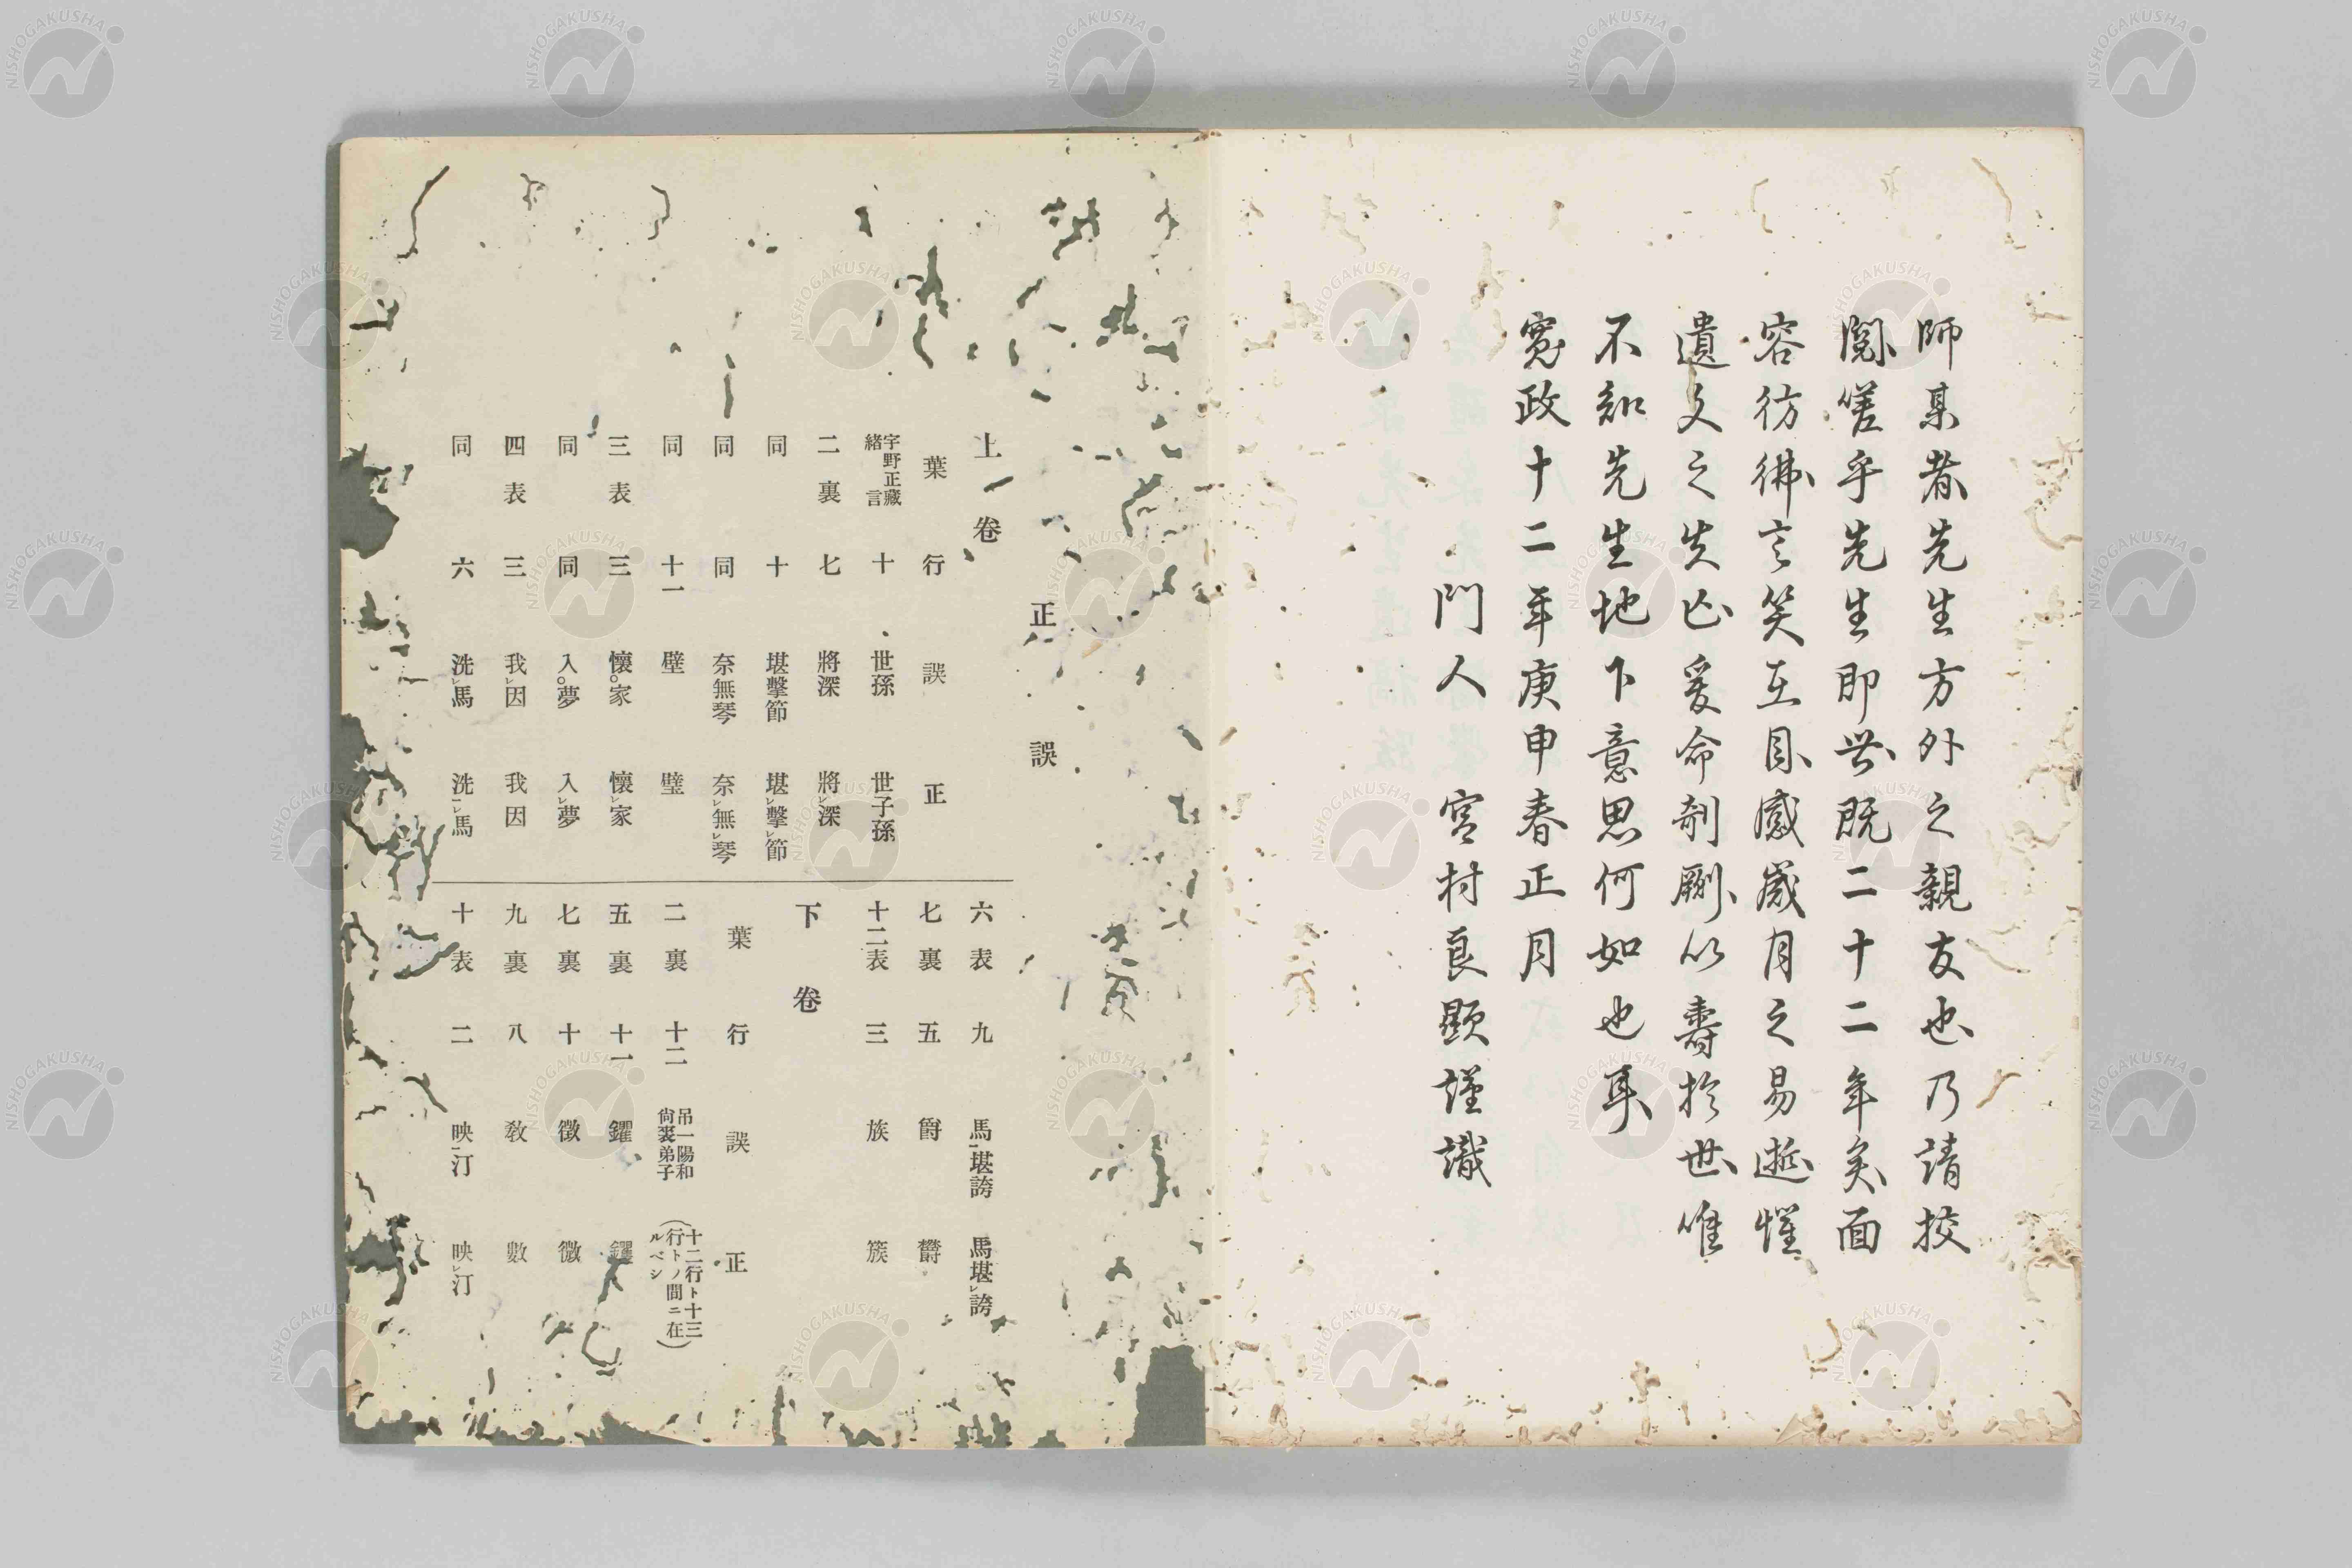 師某者先生方外之親友也乃請挍
閲嗟乎先生即世既二十二年矣面
容彷彿言笑在目感歳月之易逝懼
遺文之失亡爰命剞劂以壽於世唯
不知先生地下意思何如也耳
寛政十二年庚申春正月
門人 宮村良顕謹識
正誤
上卷
葉 行 誤 正
宇野正藏緒言 十 世孫 世子孫
二裏 七 將深 將レ深
同 十 堪擊節 堪レ擊レ節
同 同 奈無琴 奈レ無レ琴
同 十一 壁 璧
三表 三 懷○家 懷レ家
同 同 入○夢 入レ夢
四表 三 我レ因 我因
同 六 洗レ馬 洗一レ馬
六表 九 馬一堪誇 馬堪レ誇
七裏 五 爵 欝
十二表 三 族 簇
下卷
葉 行 誤 正
二裏 十二 吊一陽和尙裘弟子 (十二行ト十三行トノ間ニ在ルベシ)
五裏 十一 鑺 钁
七裏 十 徵 微
九裏 八 敎 數
十表 二 映一汀 映レ汀
NISHOGAKUSHA